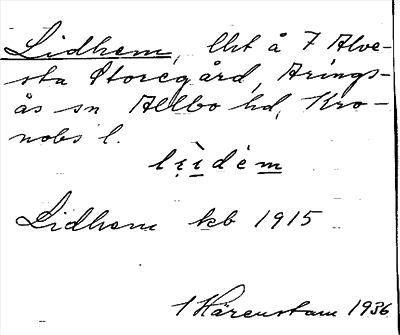 Lidhem, lht å 7 Alve-
sta Storegård, Arings-
ås sn Allbo hd, Kro-
nobs l.
Lidhem kb 1915
1 Härenstam 1936